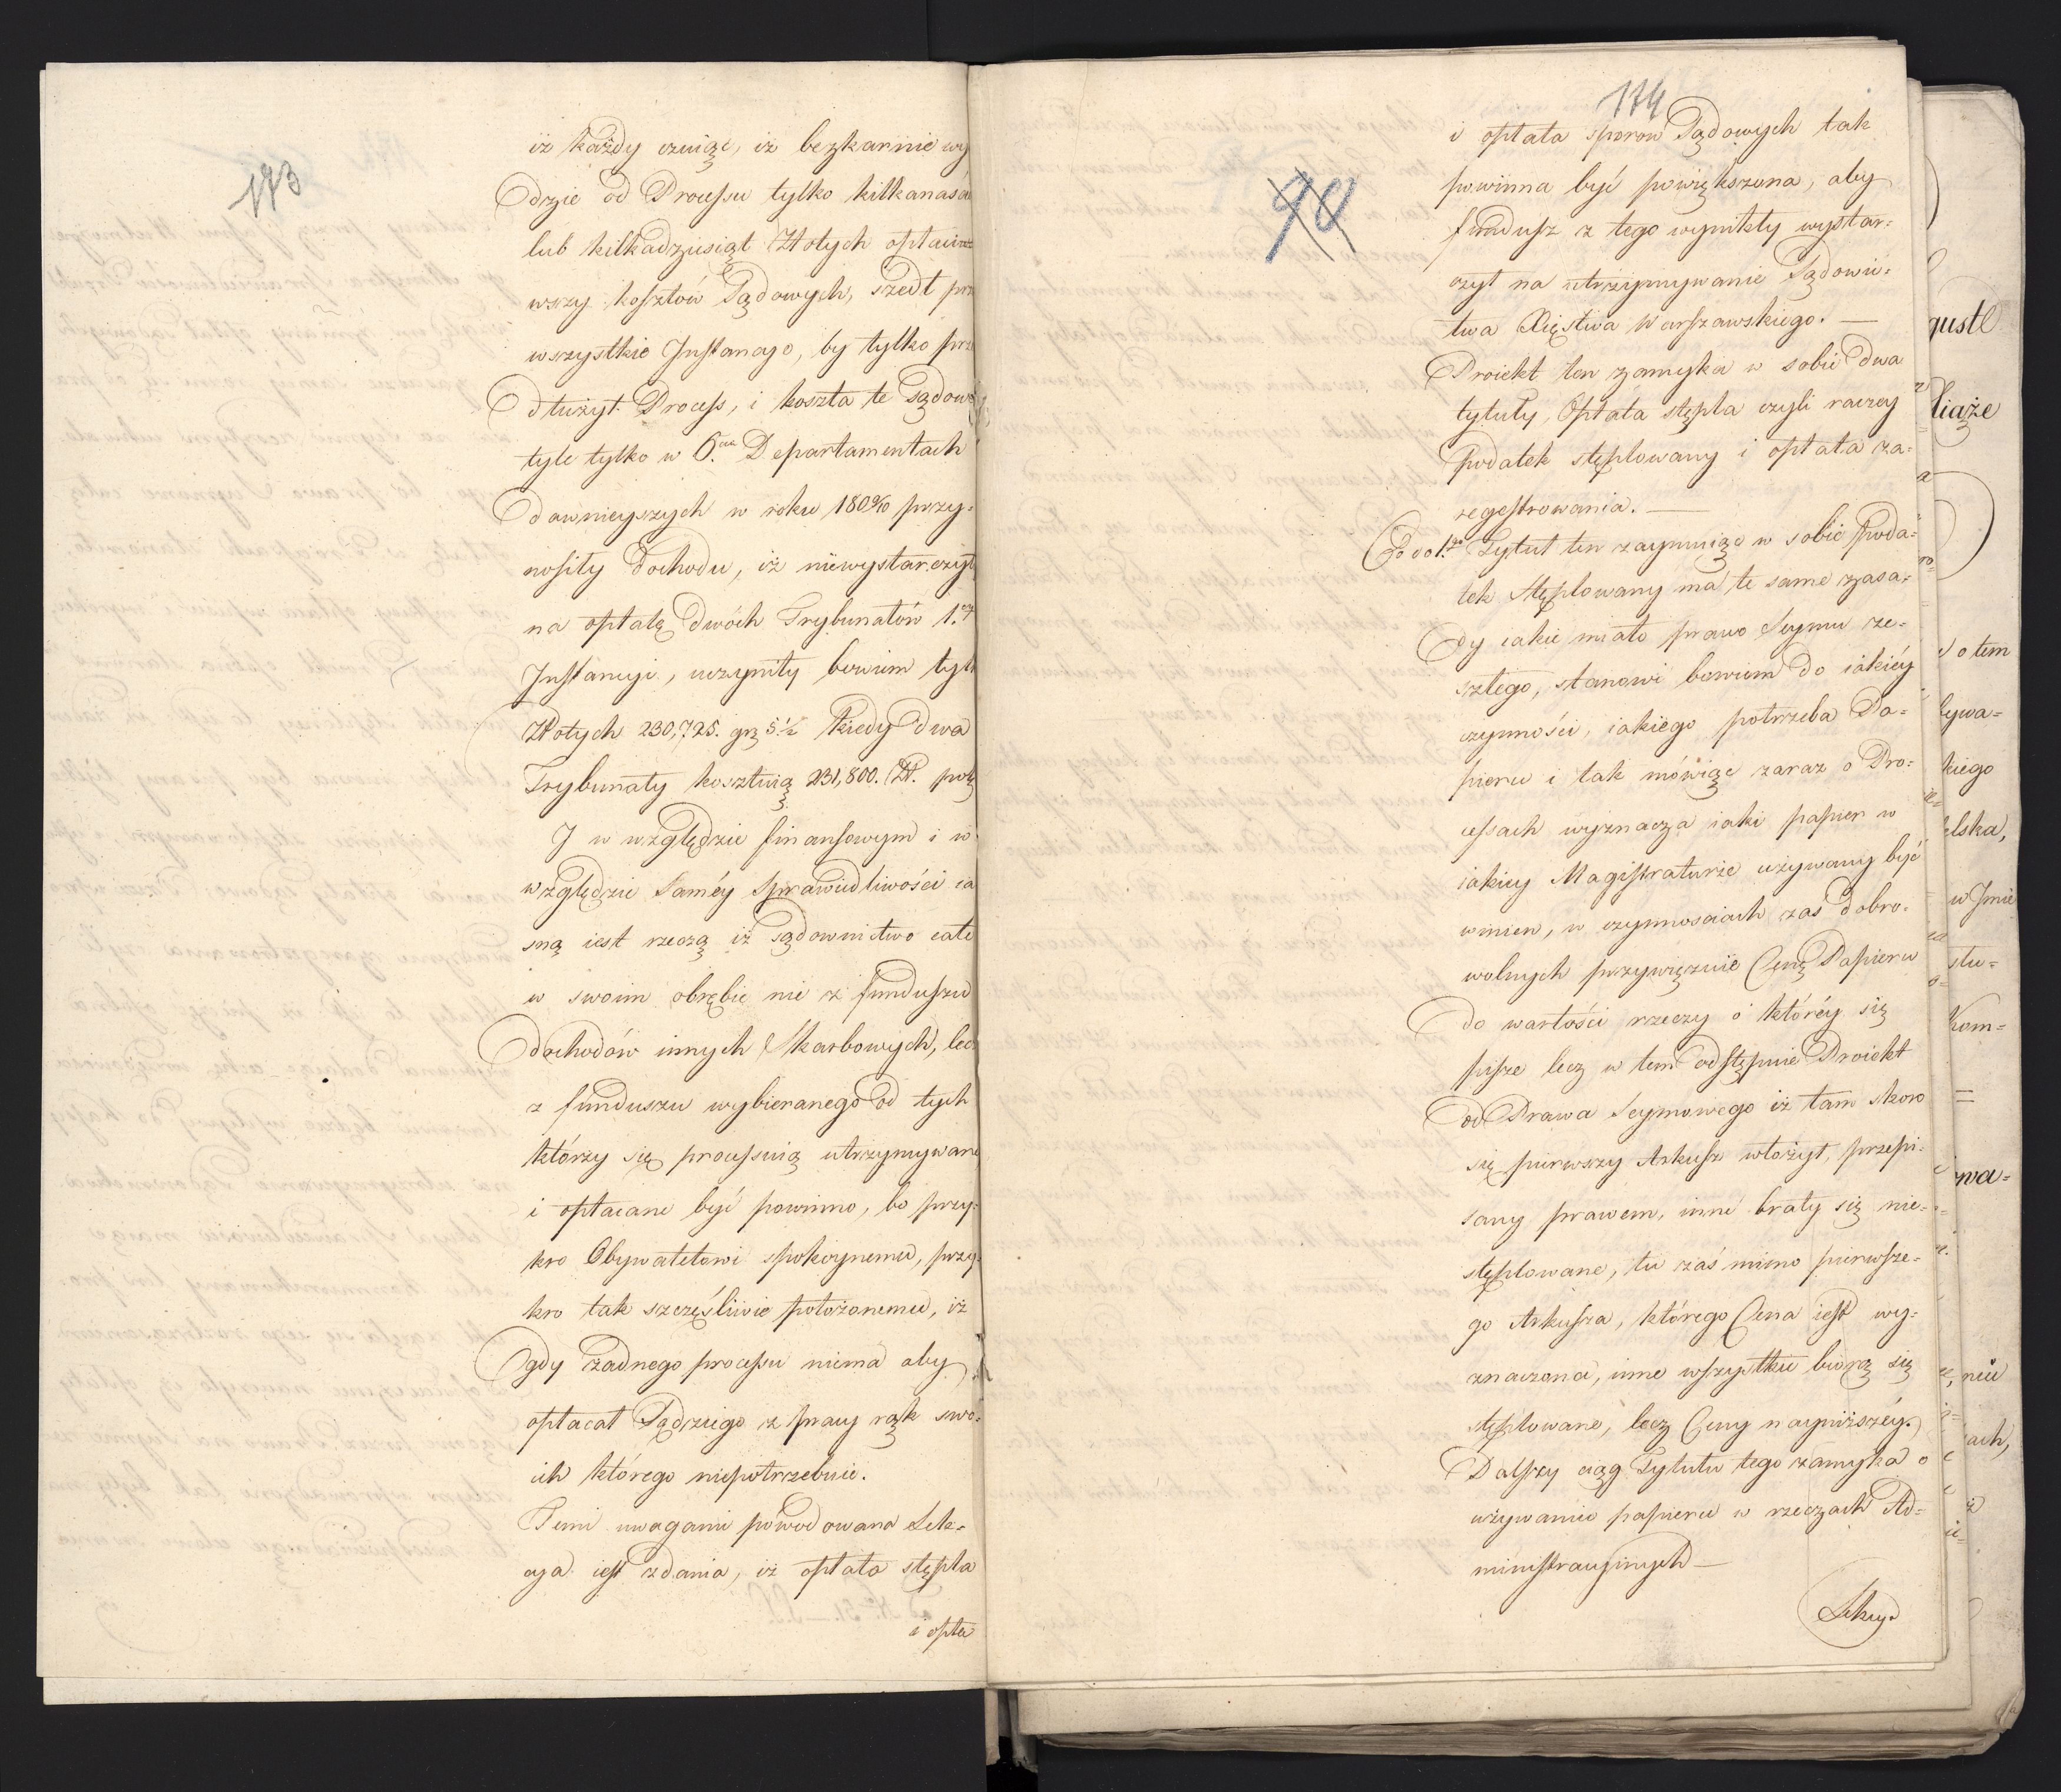 173
iż każdy czuiąc, iż bezkarnie wy
dzie od Processu tylko kilkanaście
lub kilkadziesiąt Złotych opłaci=
wszy kosztów Sądowych, szedł prz
wszystkie Instancye, by tylko prze
dłużył Process, i koszta te Sądowe
tyle tylko w 6.ciu Departamentach
dawnieyszych w roku 1809/10 przy=
nosiły dochodu, iż niewystarczył
na opłatę dwóch Trybunałów 1.ey
Instancyi, uczyniły bowiem tylk
Złotych 230,725. gr 5½ kiedy dwa
Trybunały kosztuią 231,800. Zł. pol
I w względzie finansowym i w
względzie saméy sprawiedliwości ia
sną iest rzeczą iż sądownictwo całe
w swoim obrębie nie z funduszu
dochodów innych Skarbowych, lecz
z funduszu wybieranego od tych
którzy się processuią utrzymywane
i opłacane być powinno, bo przy=
kro Obywatelowi spokoynemu, przy=
kro tak szczęśliwie położonemu, iż
gdy żadnego processu niema aby
opłacał Sędziego z pracy rąk swo=
ich którego niepotrzebuie.
Temi uwagami powodowana Sek=
cya iest zdania, iż opłata stępla
i opła
174
90
i opłata sporow Sądowych tak
powinna być powiększona, aby
fundusz z tego wynikły wystar=
czył na utrzymywanie Sądowni=
twa Xięstwa Warszawskiego. —
Proiekt ten zamyka w sobie dwa
tytuły, Opłata stępla czyli raczey
podatek stęplowany i opłata za=
regestrowania. —
Co do 1.go Tytuł ten zaymuiąc w sobie poda=
tek stęplowany ma te same zasa=
dy iakie miało prawo Seymu ze=
szłego, stanowi bowiem do iakiéy
czynności, iakiego potrzeba Pa=
pieru i tak mówiąc zaraz o Pro=
cessach wyznacza iaki papier w
iakiey Magistraturze używany być
winien, w czynnościach zaś dobro=
wolnych przywięzuie Cenę Papieru
do wartości rzeczy o któréy się
pisze lecz w tem odstępuie Proiekt
od Prawa Seymowego iż tam skoro
się pierwszy Arkusz włożył, przepi=
sany prawem, inne brały się nie=
stęplowane, tu zaś mimo pierwsze=
go Arkusza, którego Cena iest wy=
znaczona, inne wszystkie biorą się
stęplowane, lecz Ceny nayniższéy.
Dalszy ciąg Tytułu tego zamyka o
używaniu papieru w rzeczach Ad=
ministracyinych —
Sekcy
gustl
Xiąże
o tem
bywa=
kiego
elska,
w Jmie
stu=
Kom=
=
wa=
niu
ach,